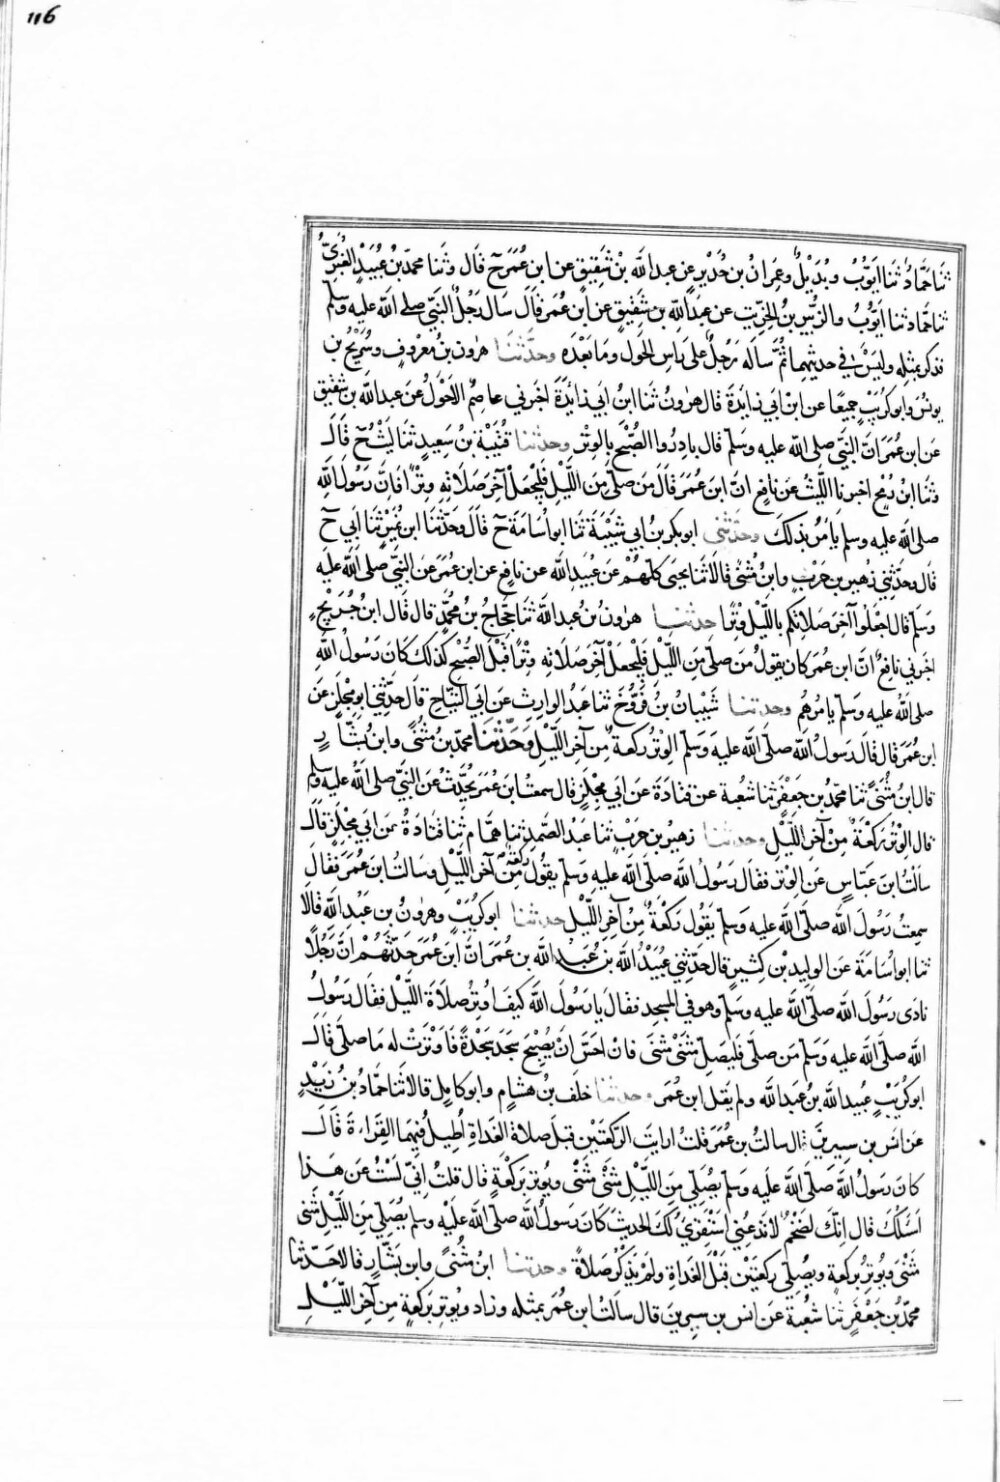 116
ثنا حَمَّادٌ ثنا أَيّوُبُ وبُدَيْلٌ وعِمرَانُ بن حُدَيْرٍ عن عبد الله بْنُ شَقِيقٍ عن ابن عُمَرَ ح قال وثنا محمّد بنُ عُبَيْدٍ الغُبَرِيُّ
ثنا حَمَّاد ثنا أيّوُبُ والزُّبَيرُ بنُ الخِرِّيت عن عبد اللهِ بن شَقِيق عن ابن عُمَر قَالَ سَال رَجُلٌ النَّبِيّ صلى الله عليه وسلم
فذكر بمثلِهِ وليسَ في حديثهما ثُمَّ سَاله رَجُلٌ على رَاسِ الحَولِ وما بَعْدَه وحدَّثَنَا هرون بن معْروفٍ وسُرَيْجُ بن
يونسَ وابو كُرَيْبٍ جميعًا عن ابْن أبي زايدَةَ قال هٰرونُ ثنا ابنُ أبي زايدَة أخبرني عاصِمٌ الأَحْوَلُ عن عبد الله بن شقيق
عن ابن عُمَر انّ النَّبيّ صلى الله عليه وسَلم قال بادِرُوا الصُّبْحَ بالوِتْرِ وحدثنا قُتَيْبَة بنُ سَعِيدٍ ثنا لَيْثٌ ح قَالَ
وثنا ابنُ رُمْحٍ اخبرنا اللَّيْثُ عن نافعٍ انَّ ابن عُمَر قَالَ مَن صلّى مِنَ اللَّيْلِ فليَجْعَلْ آخِرَ صَلاَتِهِ وِترًا فإنّ رَسُولَ اللهِ
صلى الله عليه وسلم يَأمُر بذلكَ وحَدَّثَنِي ابو بكر بنُ ابي شَيْبَةَ ثنا ابو اُسَامَةَ ح قَالَ وَحَدّثنَا ابن نُمَيْرٍ ثنا أبي ح
قال وحدّثني زُهَير بن حَرْبٍ وابنُ مُثَنى قالا ثنا يحيى كلّهُمْ عن عُبَيدِ الله عن نافع عن ابن عُمَرَ عن النبيّ صلى الله عليه
وسَلم قال اجعلوا آخِرَ صَلاتِكم باللَّيْلِ وِترًا حدثنا هرونُ بن عبد الله ثنا حَجّاجُ بن محُمَّدٍ قال قال ابنُ جُرَيْجٍ
اخبرني نافعٌ انَّ ابن عمَر كان يَقولُ مَن صلّى مِنَ اللَّيْلِ فَليَجعَلْ آخِرَ صَلاتِهِ وِتْرًا قَبْلَ الصُّبْحِ كذلك كَانَ رَسُولُ اللهِ
صلى اللهُ عليه وسَلّم يامرُهُم وحدثنا شَيْبَانُ بنُ فَرُّوخَ ثنا عَبدُ الوارِثِ عن ابي التَّيّاحِ قال حدّثني ابو مِجْلَزٍ عن
ابن عُمَرَ قال قال رسُولُ اللهِ صلّى الله عليه وَسَلم الوِتْرُ رَكعَةٌ مِن آخِرِ اللَّيْلِ وَحَدّثَنَا محمّد بن مُثَنًّى وابن بَشَّارٍ
قال ابنُ مُثَنًّى ثنا محمّدُ بن جَعْفَرٍ ثنا شعبة عن قتادَةَ عن ابي مِجْلَزٍ قال سمعتُ ابن عُمَر يُحَدّثُ عن النبيّ صلى اللهُ عليه وسلم
قال الوِتْرُ رَكْعَةٌ مِنْ آخِرِ اللَّيْلِ وحدثنا زهيرُ بن حَرْبٍ ثنا عَبْدُ الصَّمَدِ ثنا هَمَّام ثنا قتادَةُ عن أبي مِجْلَزٍ قَالَ
سَالتُ ابنَ عَبّاسٍ عن الوِتر فقالَ رسُولُ اللهِ صلّى الله عليه وسَلم يقُولُ رَكْعَةٌ مِن آخِرِ اللَّيْلِ وسالتُ ابن عُمَرَ فقَال
سمعتُ رَسولَ اللهِ صلّى الله عليه وسَلم يَقُولُ رَكْعَةٌ مِنْ آخِرِ اللَّيْلِ حدثنا ابو كُرَيْبٍ وهٰرونُ بن عَبْدِ اللهِ قَالاَ
ثنا ابو اُسَامَةَ عن الوليدِ بن كَثِيرٍ قال حدّثني عُبَيْدُ الله بن عَبْدِ الله بن عُمَر انّ ابن عُمَر حَدَّثَهُمْ انّ رَجُلاً
نادى رَسُولَ الله صلّى الله عليه وسَلّم وهو في المسجدِ فقال يا رسُولَ اللهِ كَيفَ اُوتِرُ صَلاَةَ اللَّيْلِ فقال رَسُولُ
الله صلّى الله عليه وَسَلم مَن صلّى فليُصَلِّ مَثْنَى مثنى فان احَسّ انْ يُصْبِحَ سَجَدَ سَجْدَةً فَاوْتَرَتْ له مَا صلى قَالَ
ابو كُرَيْبٍ عُبَيد الله بنُ عبد الله ولم يقل ابن عُمَر وحدثنا خلف بنُ هشَامٍ وابو كامِلٍ قالا ثنا حَمّاد بنُ زَيْدٍ
عن انَسِ بن سِيرينَ قال سالتُ ابن عُمَرَ قلتُ ارايتَ الركعَتَيْن قبلَ صلاةِ الغَداةِ أُطِيلُ فيهِما القِرَاءةَ قَالَ
كانَ رَسُولُ اللهِ صَلّى الله عليه وسَلم يُصَلّي مِنَ اللَّيْلِ مَثْنَى مَثْنى ويُوتِرُ بركْعَةٍ قال قلتُ اِنِّي لَسْتُ عن هَذَا
اَسْئَلُكَ قال اِنَّك لضَخْمٌ الاَ تدَعُنِي اَسْتَقْرِئُ لكَ الحديثَ كَانَ رَسُولُ الله صلّى اللهُ عَلَيْهِ وسلم يُصَلّي مِنَ اللَّيْلِ مَثْنى
مَثْنى ويُوتِرُ بركعةٍ ويُصَلّي ركعَتَيْنِ قَبْلَ الغَداةِ ولم يَذكُرْ صَلاَةً وحدثنا ابنُ مُثنًّى وابن بَشّارٍ قالا حَدّثنا
محمّدُ بنُ جَعْفَرٍ ثنا شُعْبَة عن انَس بن سِيرينَ قال سَالتُ ابن عُمَرَ بمثلِهِ وزاد ويُوتِرُ بركعةٍ مِن آخِرِ اللَّيْلِ